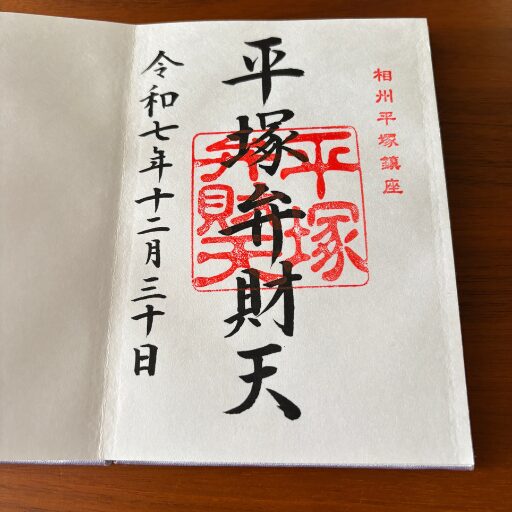 相州平塚鎮座
平塚弁財天
平塚
弁財天
令和七年十二月三十日